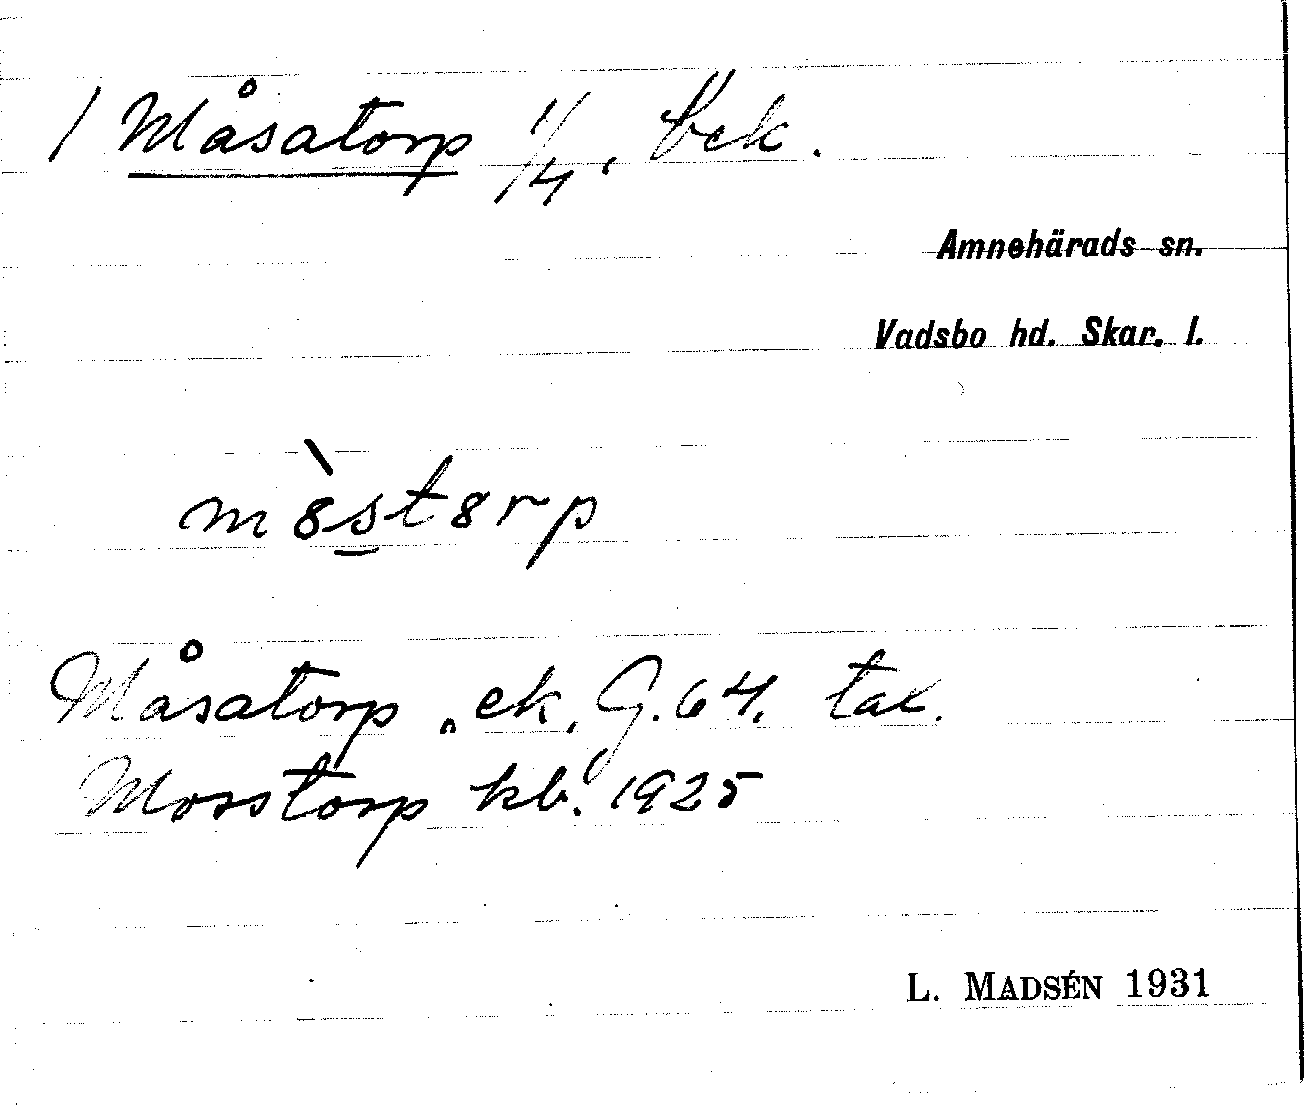 1 Måsatorp 1/4, bek.
Amnehärads sn.
Vadsbo hd. Skar. l.
mòstorp
Måsatorp, ek. G. 64, tax.
Mosstorp kb. 1925
L. MADSÉN 1931